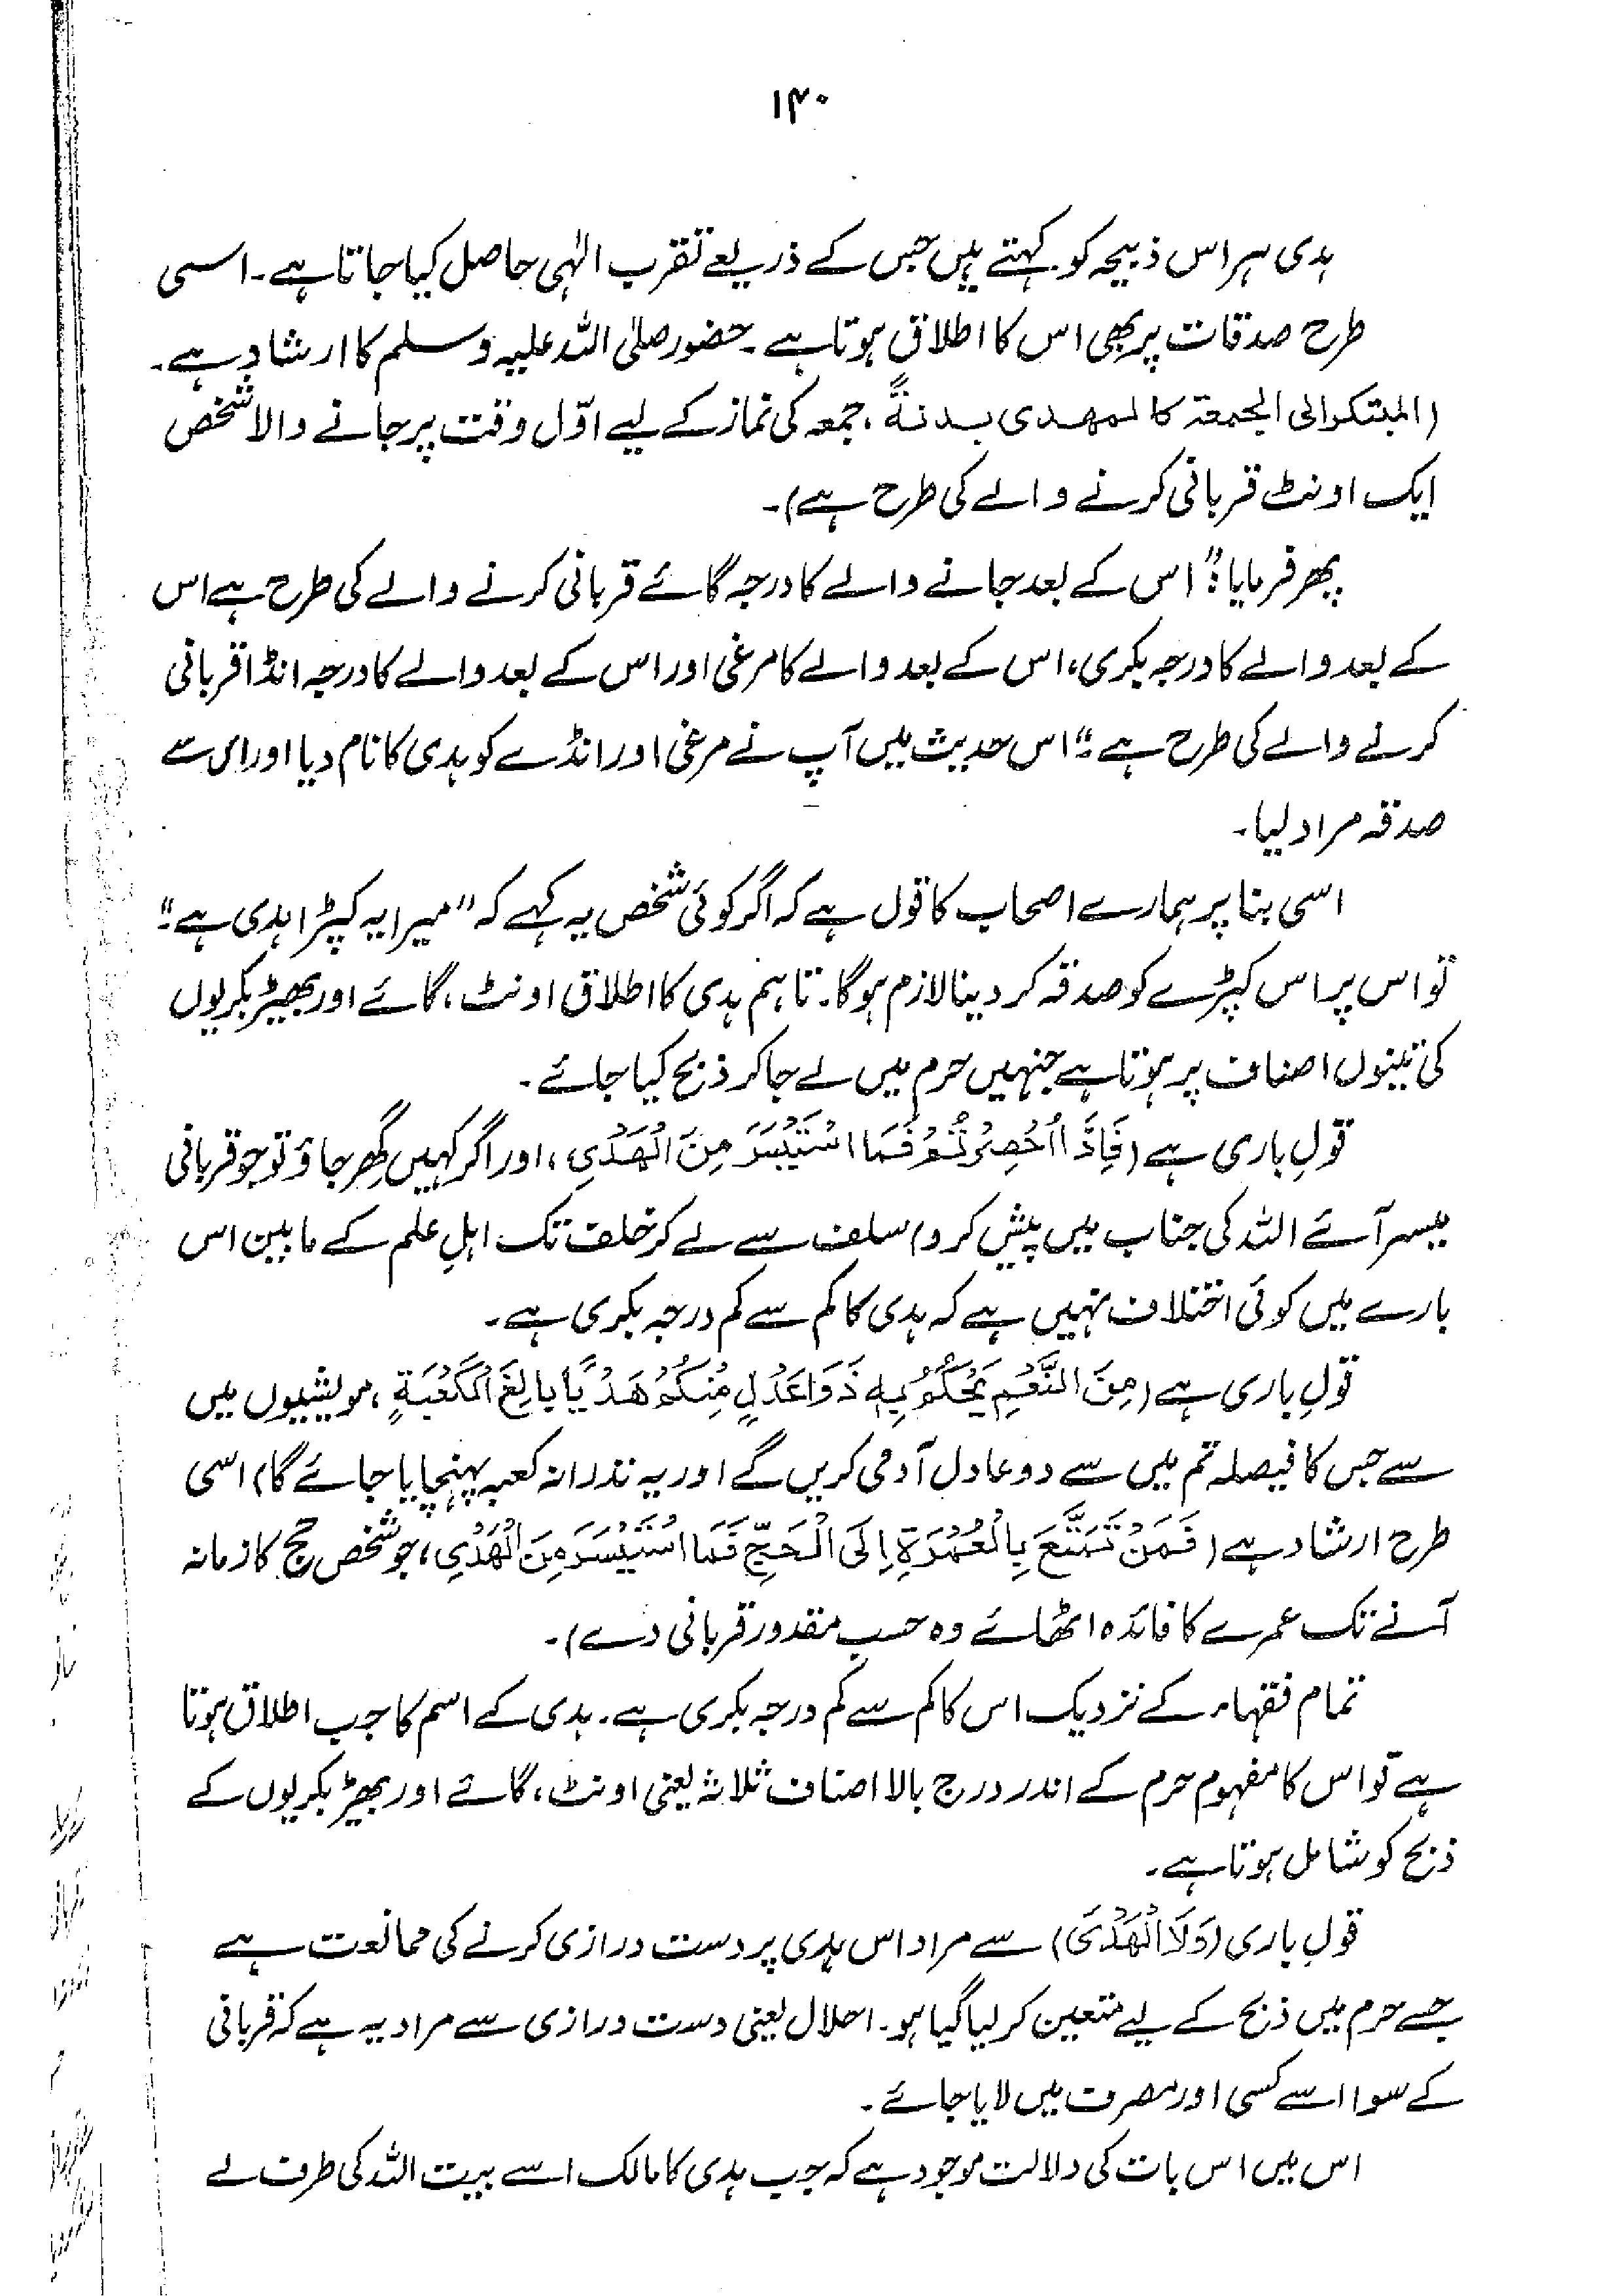 ۱۴۰
ہدی ہر اس ذبیحہ کو کہتے ہیں جس کے ذریعے تقرب الٰہی حاصل کیا جاتا ہے۔ اسی
طرح صدقات پر بھی اس کا اطلاق ہوتا ہے۔ حضور صلی اللہ علیہ وسلم کا ارشاد ہے۔
(المبتکر الی الجمعۃ کالمھدی بدنۃً، جمعہ کی نماز کے لیے اوّل وقت پر جانے والا شخص
ایک اونٹ قربانی کرنے والے کی طرح ہے)۔
پھر فرمایا: "اس کے بعد جانے والے کا درجہ گائے قربانی کرنے والے کی طرح ہے اس
کے بعد والے کا درجہ بکری، اس کے بعد والے کا مرغی اور اس کے بعد والے کا درجہ انڈا قربانی
کرنے والے کی طرح ہے" اس حدیث میں آپ نے مرغی اور انڈے کو ہدی کا نام دیا اور اس سے
صدقہ مراد لیا۔
اسی بنا پر ہمارے اصحاب کا قول ہے کہ اگر کوئی شخص یہ کہے کہ "میرا یہ کپڑا ہدی ہے"
تو اس پر اس کپڑے کو صدقہ کر دینا لازم ہوگا۔ تاہم ہدی کا اطلاق اونٹ، گائے اور بھیڑ بکریوں
کی تینوں اصناف پر ہوتا ہے جنہیں حرم میں لے جا کر ذبح کیا جائے۔
قولِ باری ہے (فَاِذَا اُحْصِرْتُمْ فَمَا اسْتَیْسَرَ مِنَ الْھَدْیِ، اور اگر کہیں گھر جاؤ تو جو قربانی
میسر آئے اللہ کی جناب میں پیش کرو) سلف سے لے کر خلف تک اہلِ علم کے مابین اس
بارے میں کوئی اختلاف نہیں ہے کہ ہدی کا کم سے کم درجہ بکری ہے۔
قولِ باری ہے (مِنَ النَّعَمِ یَحْکُمُ بِہٖ ذَوَا عَدْلٍ مِّنْکُمْ ھَدْیًا بَالِغَ الْکَعْبَۃِ، مویشیوں میں
سے جس کا فیصلہ تم میں سے دو عادل آدمی کریں گے اور یہ نذرانہ کعبہ پہنچایا جائے گا) اسی
طرح ارشاد ہے (فَمَنْ تَمَتَّعَ بِالْعُمْرَۃِ اِلَی الْحَجِّ فَمَا اسْتَیْسَرَ مِنَ الْھَدْیِ، جو شخص حج کا زمانہ
آنے تک عمرے کا فائدہ اٹھائے وہ حسب مقدور قربانی دے)۔
تمام فقہاء کے نزدیک اس کا کم سے کم درجہ بکری ہے۔ ہدی کے اسم کا جب اطلاق ہوتا
ہے تو اس کا مفہوم حرم کے اندر درج بالا اصناف ثلاثہ یعنی اونٹ، گائے اور بھیڑ بکریوں کے
ذبح کو شامل ہوتا ہے۔
قولِ باری (وَلَا الْھَدْیَ) سے مراد اس ہدی پر دست درازی کرنے کی ممانعت ہے
جسے حرم میں ذبح کے لیے متعین کر لیا گیا ہو۔ احلال یعنی دست درازی سے مراد یہ ہے کہ قربانی
کے سوا اسے کسی اور مصرف میں لایا جائے۔
اس میں اس بات کی دلالت موجود ہے کہ جب ہدی کا مالک اسے بیت اللہ کی طرف لے